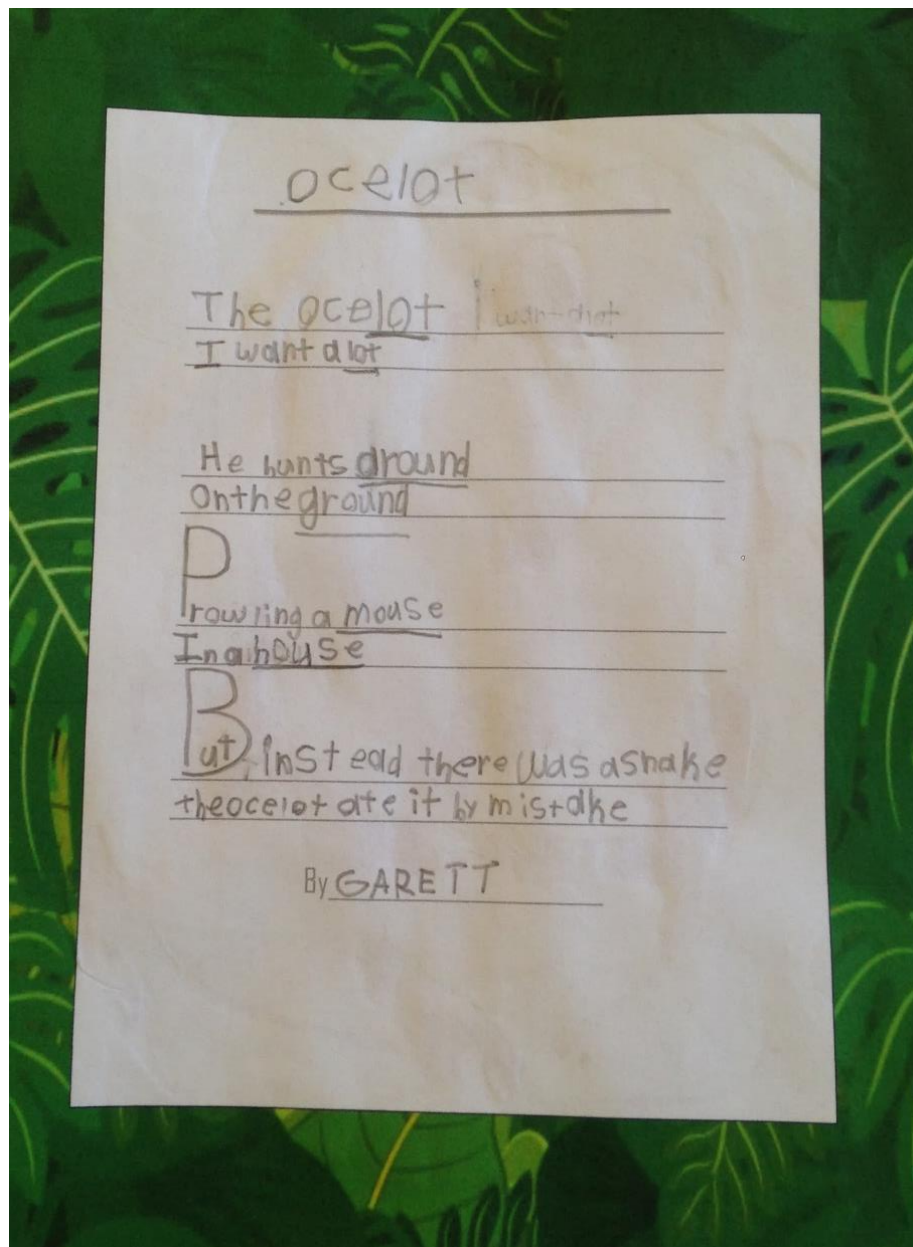 ocelot
The ocelot i want alot
I want alot
He hunts around
On the ground
Prowling a mouse
In a house
But, instead there was a snake
the ocelot ate it by mistake
By GARETT